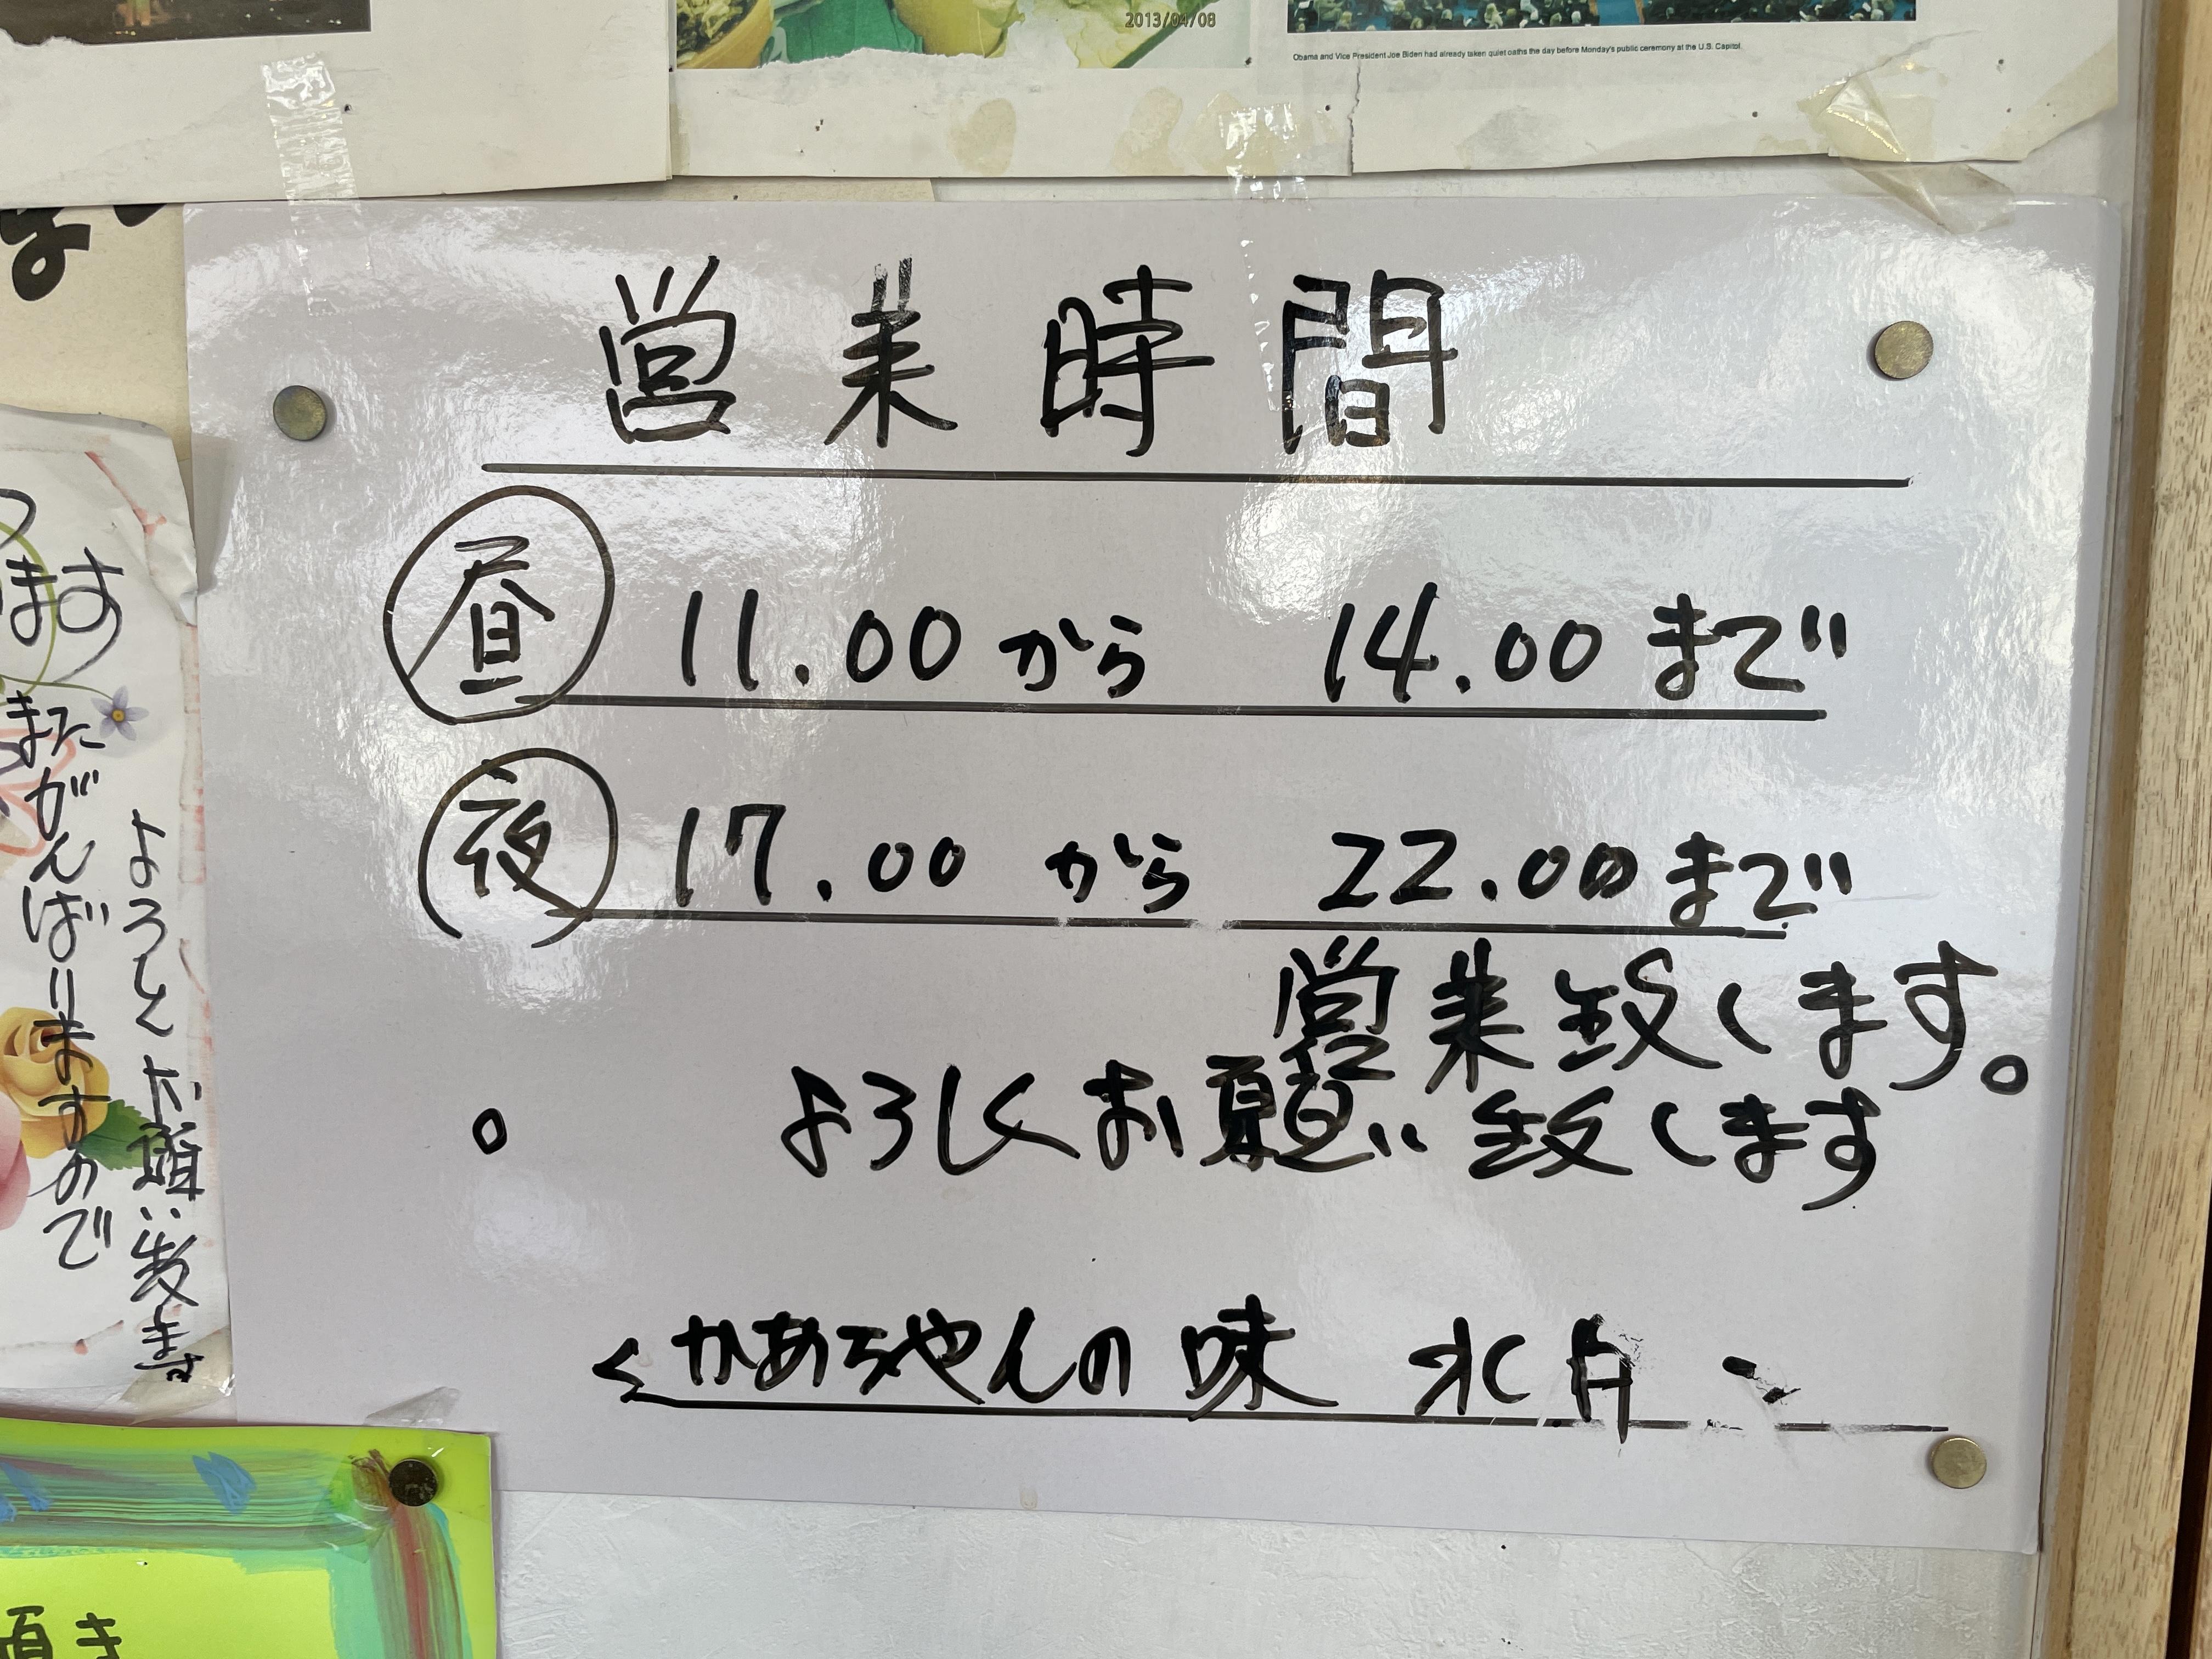 2013/04/08
Obama and Vice President Joe Biden had already taken quiet oaths the day before Monday's public ceremony at the U.S. Capitol.
営業時間
昼 11.00 から 14.00 まで
夜 17.00 から 22.00 まで
営業致します。
よろしくお願い致します
。
<かあちゃんの味
ます
またがんばりますので
よろしくお願い致します
頂き